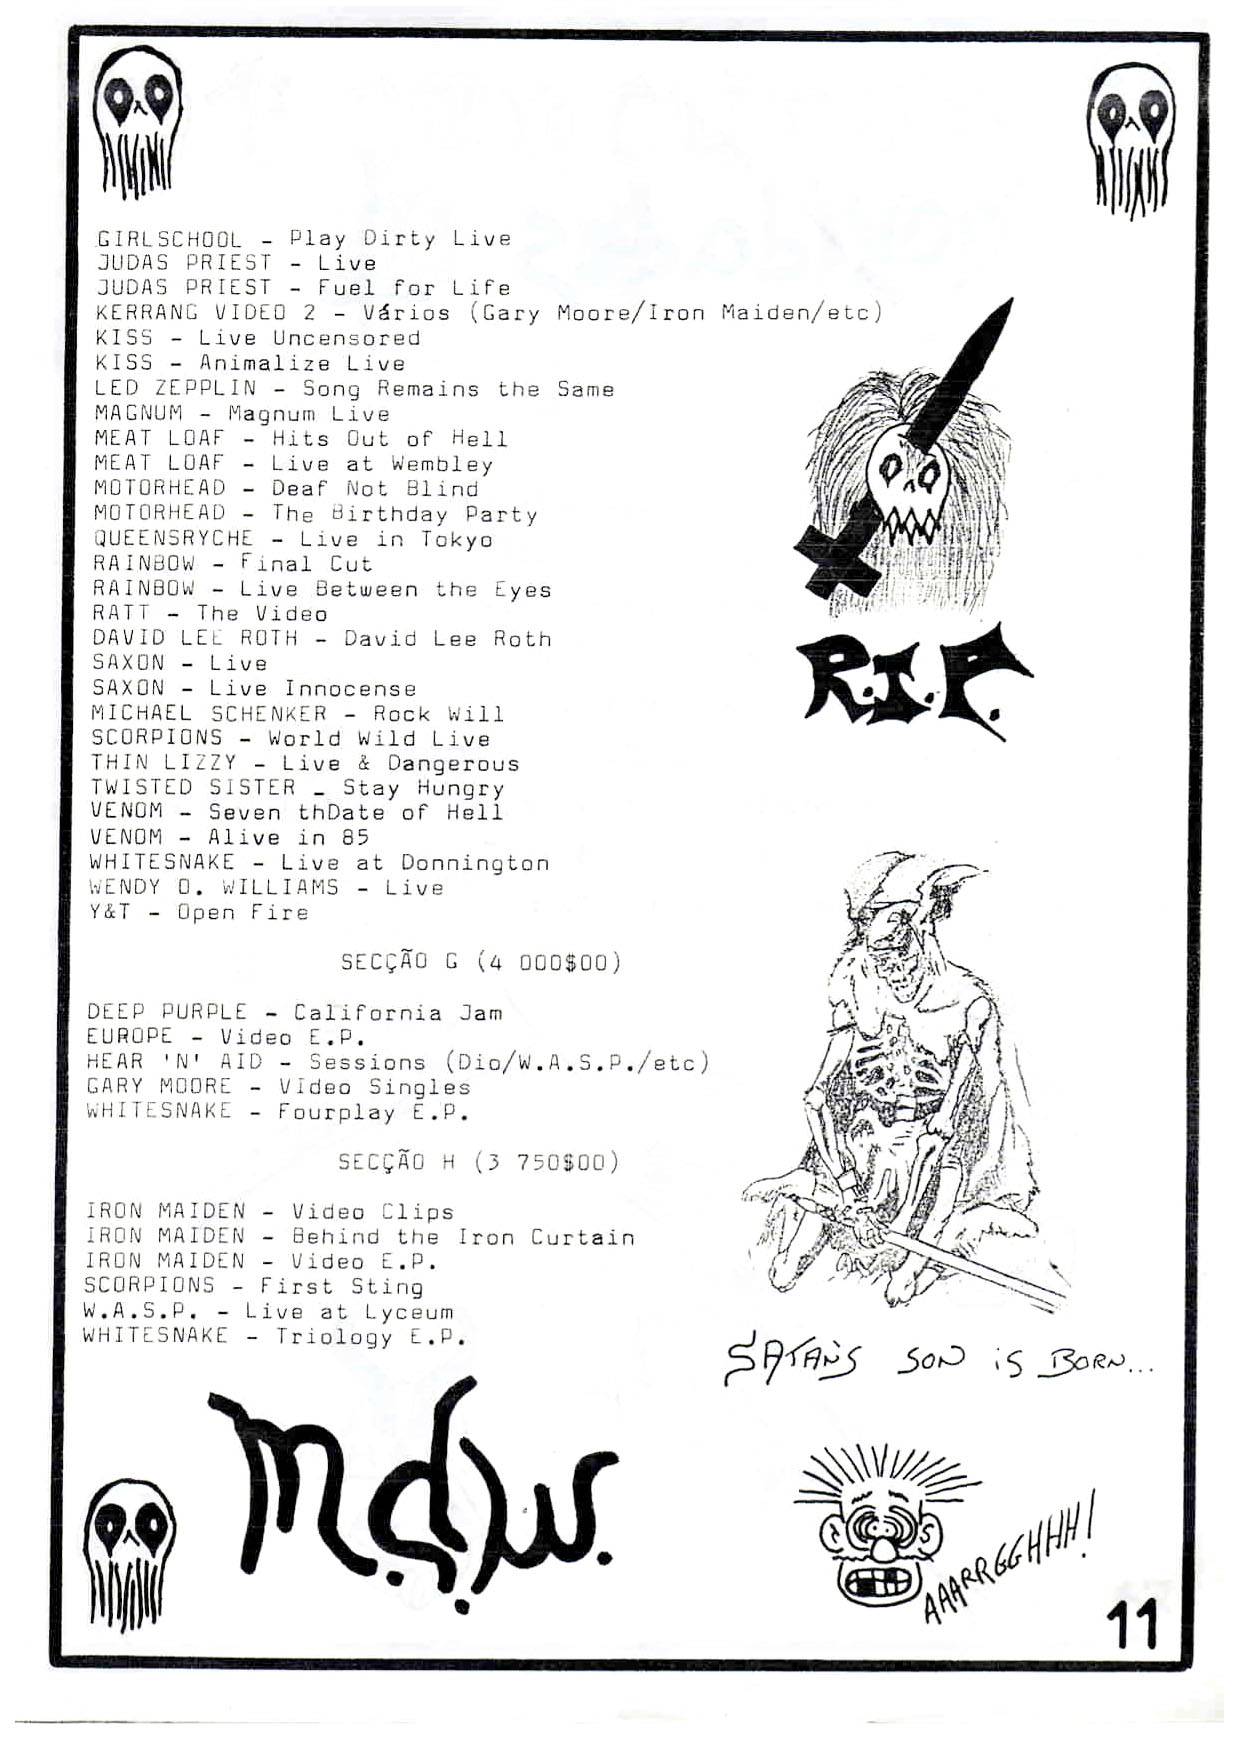 GIRLSCHOOL - Play Dirty Live
JUDAS PRIEST - Live
JUDAS PRIEST - Fuel for Life
KERRANG VIDEO 2 - Vários (Gary Moore/Iron Maiden/etc)
KISS - Live Uncensored
KISS - Animalize Live
LED ZEPPLIN - Song Remains the Same
MAGNUM - Magnum Live
MEAT LOAF - Hits Out of Hell
MEAT LOAF - Live at Wembley
MOTORHEAD - Deaf Not Blind
MOTORHEAD - The Birthday Party
QUEENSRYCHE - Live in Tokyo
RAINBOW - Final Cut
RAINBOW - Live Between the Eyes
RATT - The Video
DAVID LEE ROTH - David Lee Roth
SAXON - Live
SAXON - Live Innocense
MICHAEL SCHENKER - Rock Will
SCORPIONS - World Wild Live
THIN LIZZY - Live & Dangerous
TWISTED SISTER _ Stay Hungry
VENOM - Seven thDate of Hell
VENOM - Alive in 85
WHITESNAKE - Live at Donnington
WENDY O. WILLIAMS - Live
Y&T - Open Fire
R.I.P.
SECÇÃO G (4 000$00)
DEEP PURPLE - California Jam
EUROPE - Video E.P.
HEAR 'N' AID - Sessions (Dio/W.A.S.P./etc)
GARY MOORE - VIdeo Singles
WHITESNAKE - Fourplay E.P.
SECÇÃO H (3 750$00)
IRON MAIDEN - Video Clips
IRON MAIDEN - Behind the Iron Curtain
IRON MAIDEN - Video E.P.
SCORPIONS - First Sting
W.A.S.P. - Live at Lyceum
WHITESNAKE - Triology E.P.
SATAN'S SON iS BORN...
AAARRGGHHH!
11